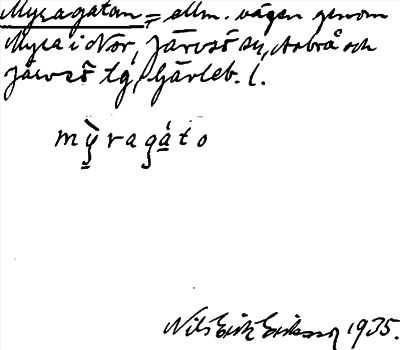 Myragatan = allm. vägen genom
Myra i Nor, Järvsö sn, Arbrå och
Järvsö tg, Gävleb. l.
mỳ̱ragá̱to
Nils Erik Eriksson 1935.